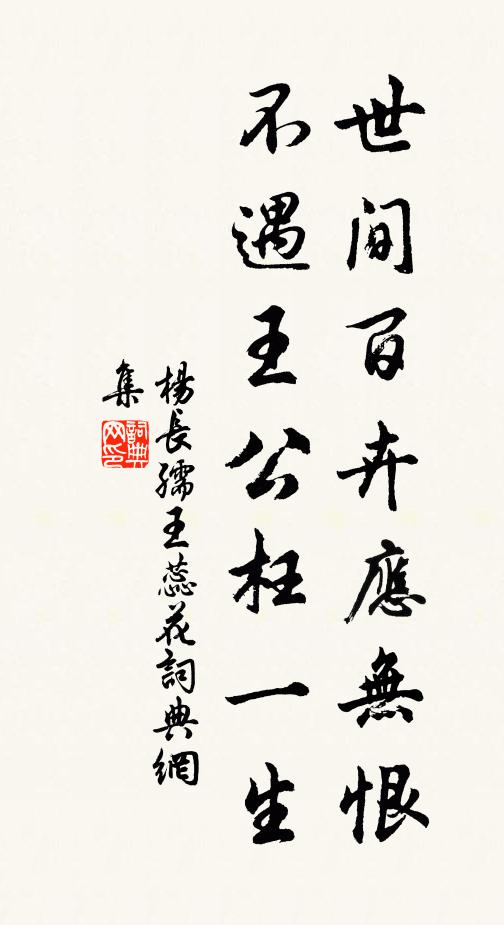 世間百卉應無恨
不遇王公枉一生
楊長孺王蕊花詞典網
集
詞典
网印